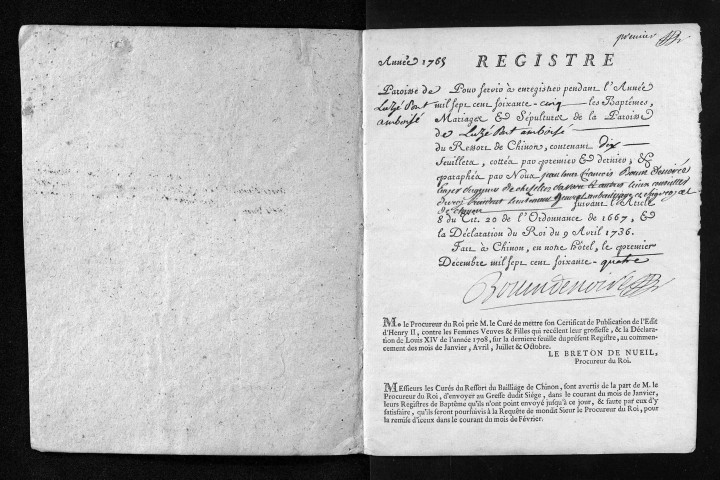 premier
Année 1765 REGISTRE
Paroisse de
Luzé Pont
amboisé
Pour servir à enregistrer pendant l'Année
mil sept cent soixante-cinq les Baptêmes,
Mariages & Sépultures de la Paroisse
de Luzé Pont amboisé
du Ressort de Chinon, contenant dix
feuillets, cottés par premier & dernier, &
paraphés par Nous
suivant l'Article
8 du Tit. 20 de l'Ordonnance de 1667, &
la Déclaration du Roi du 9 Avril 1736.
Fait à Chinon, en notre hôtel, le premier
Décembre mil sept cent soixante-quatre
Mr le Procureur du Roi prie M. le Curé de mettre son Certificat de Publication de l'Edit
d'Henry II, contre les Femmes Veuves & Filles qui recélent leur grossesse, & la Déclara-
tion de Louis XIV de l'année 1708, sur la derniere feuille du présent Registre, au commen-
cement des mois de Janvier, Avril, Juillet & Octobre.
LE BRETON DE NUEIL,
Procureur du Roi.
MEssieurs les Curés du Ressort du Bailliage de Chinon, sont avertis de la part de M. le
Procureur du Roi, d'envoyer au Greffe dudit Siége, dans le courant du mois de Janvier,
leurs Registres de Baptême qu'ils n'ont point envoyé jusqu'à ce jour, & faute par eux d'y
satisfaire, qu'ils seront poursuivis à la Requête de mondit Sieur le Procureur du Roi, pour
la remise d'iceux dans le courant du mois de Février.